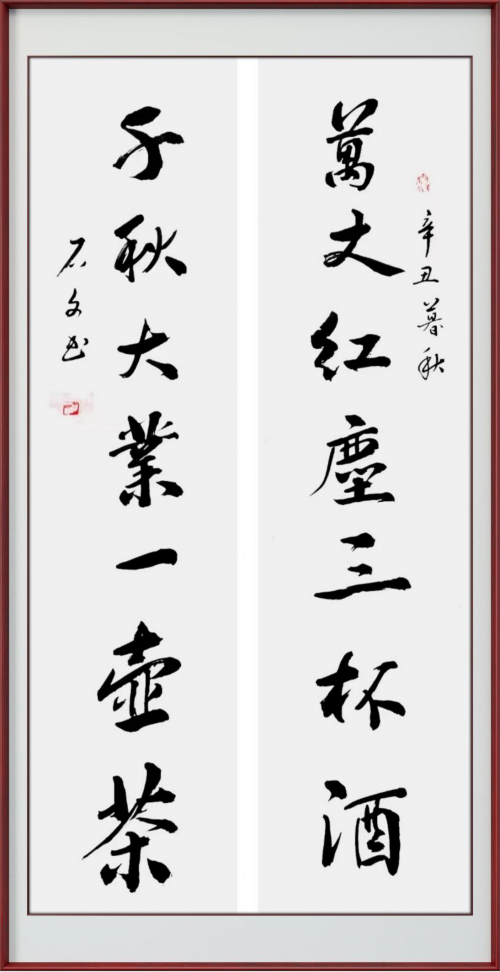 辛丑暮秋
萬丈红塵三杯酒
千秋大業一壺茶
石文书